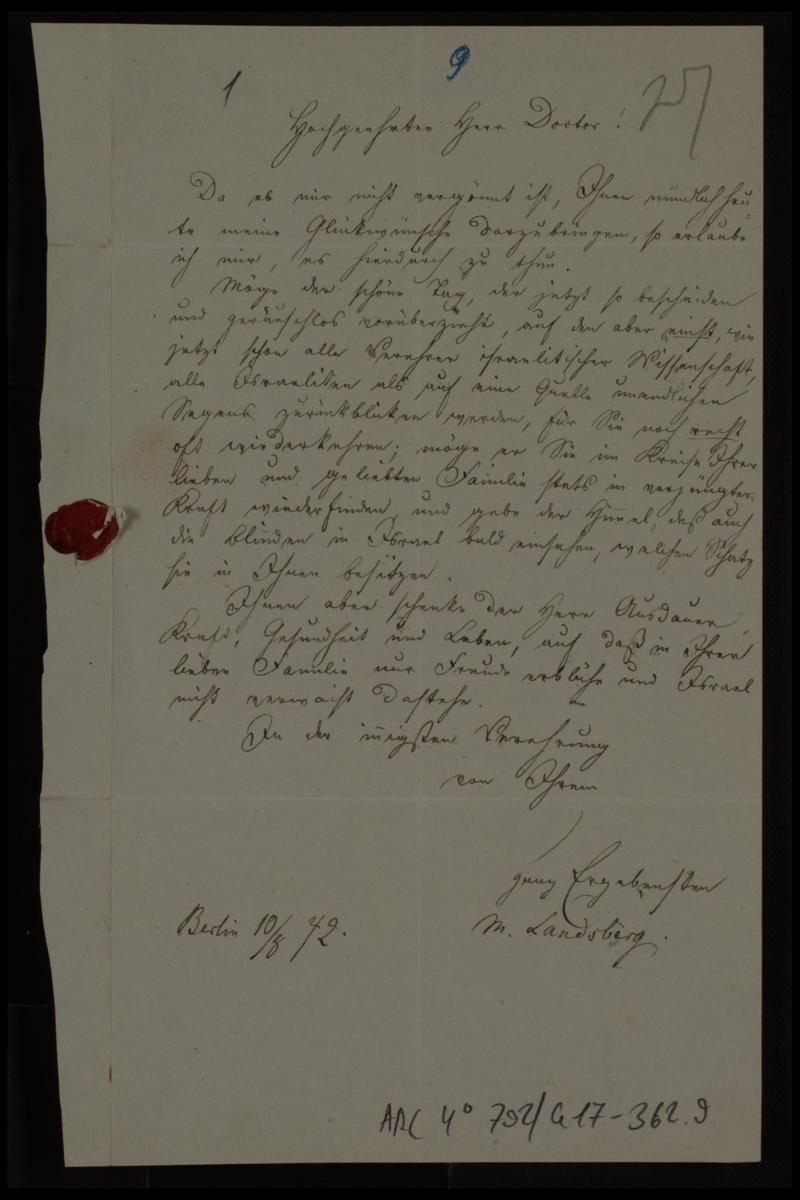 1
9
Hochgeehrter Herr Doctor!
Da es mir nicht vergönnt ist, Ihnen mündlich heu-
te meine Glückwünsche darzubringen, so erlaube
ich mir, es hierdurch zu thun.
Möge der schöne Tag, der jetzt so bescheiden
und geräuschlos vorüberzieht, auf den aber einst, wie
jetzt schon alle Verehrer israelitischer Wissenschaft,
alle Israeliten als auf eine Quelle unendlichen
Segens zurückblicken werden, für Sie noch recht
oft wiederkehren; möge er Sie im Kreise Ihrer
lieben und geliebten Familie stets in verjüngter
Kraft wiederfinden, und gebe der Himmel, daß auch
die Blinden in Israel bald einsehen, welchen Schatz
sie in Ihnen besitzen.
Ihnen aber schenke der Herr Ausdauer,
Kraft, Gesundheit und Leben, auf daß in Ihrer
lieben Familie nur Freude erblühe und Israel
nicht verwaist dastehe.
In der innigsten Verehrung
von Ihrem
ganz Ergebensten
Berlin 10/8 72.
M. Landsberg.
ARC 4° 792/G17-362.9